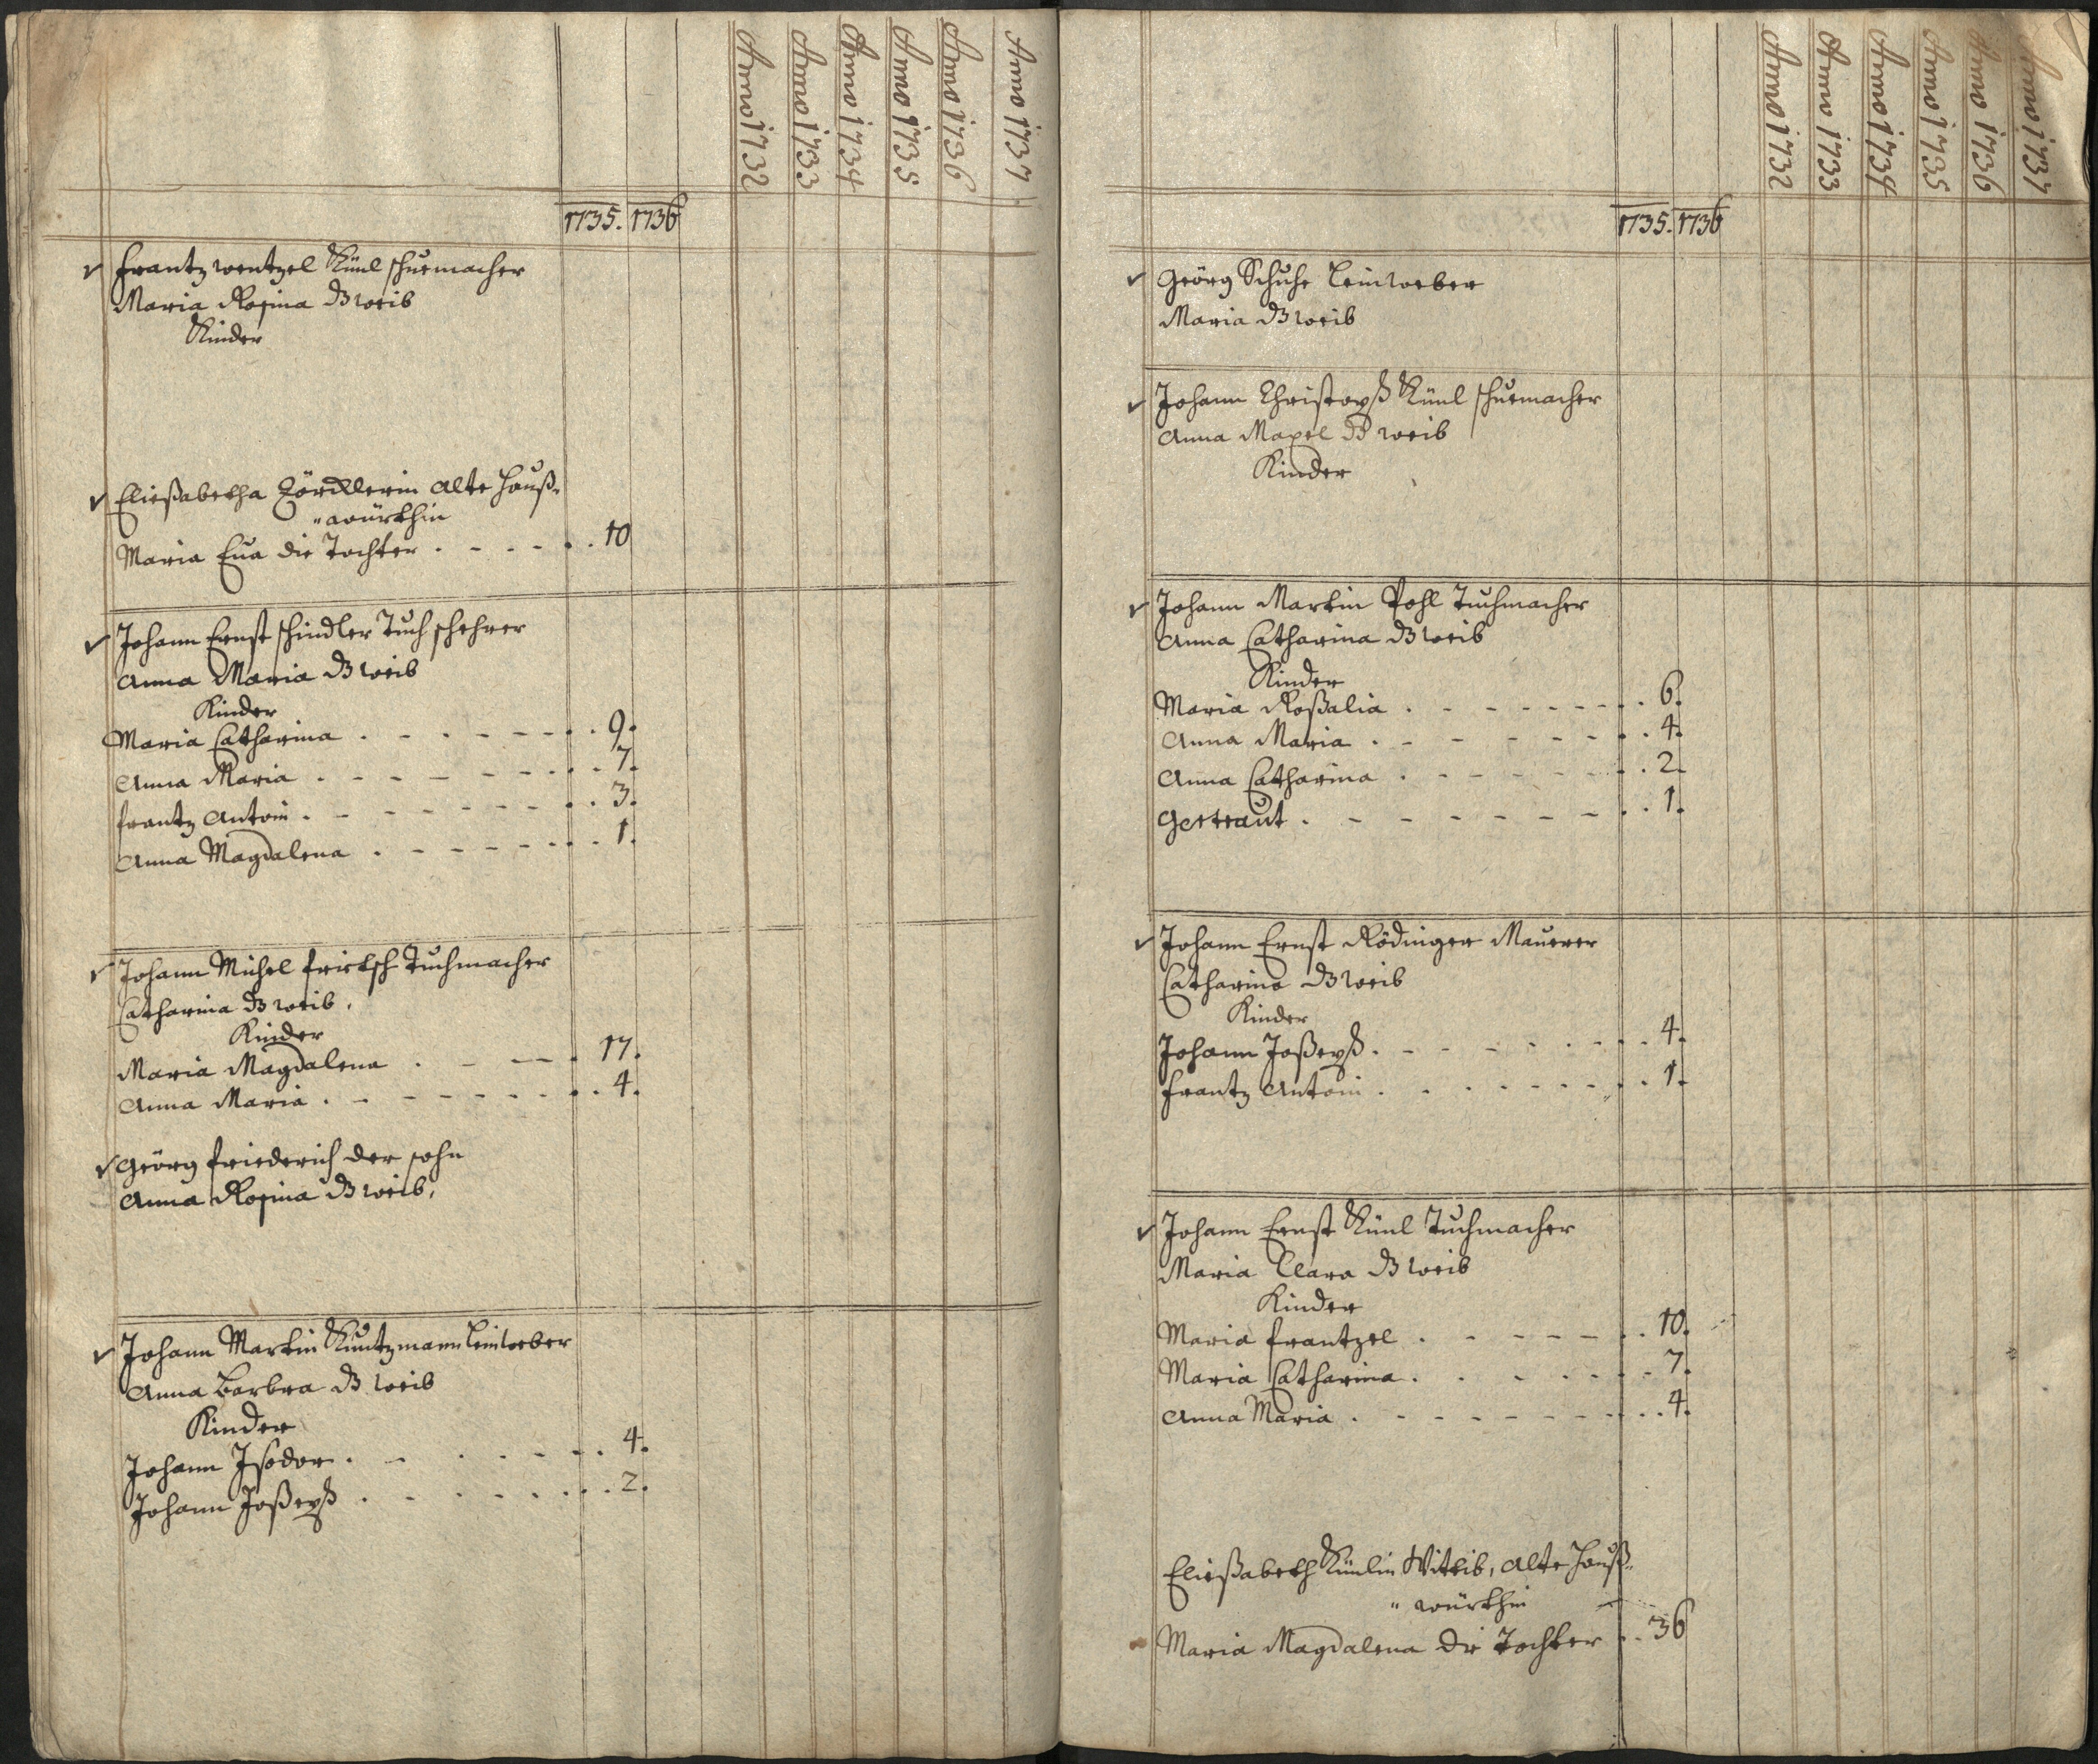 Anno 1732
Anno 1733
Anno 1734
Anno 1735
Anno 1736
Anno 1737
1735. 1736
Frantz Wentzel Künl schuemacher
Maria Rosina ds weib
Kinder
Eließabetha alte Hauß„
„würthin
Maria Eua die Tochter . . . . . . 10
Johann Ernst schindler Tuch schehrer
Anna Maria ds weib
Kinder
Maria Catharina . . . . . . . 9.
Anna Maria . . . . . . . 7.
frantz Antoni . . . . . . . 3.
Anna Magdalena . . . . . . . 1.
Johann Michel fritsch Tuchmacher
Catharina ds weib,
Kinder
Maria Magdalena . . . . 17.
Anna Maria . . . . . . . 4.
Geörg friederich der sohn
Anna Rosina ds weib,
Johann Martin Kuntzmann Leinweber
Anna Barbra ds weib
Kinder
Johann Isodor . . . . . . . 4.
Johann Joßeph . . . . . . . 2.
Anno 1732
Anno 1733
Anno 1734
Anno 1735
Anno 1736
Anno 1737
1735. 1736
Geörg Schuhe Leinweber
Maria ds weib
Johann Christoph Künl schuemacher
Anna ds weib
Kinder
Johann Martin Pohl Tuchmacher
Anna Catharina ds weib
Kinder
Maria Roßalia . . . . . . . 6.
Anna Maria . . . . . . . 4.
Anna Catharina . . . . . . . 2.
Gertraut . . . . . . . 1.
Johann Ernst Rödinger Mauerer
Catharina ds weib
Kinder
Johann Joßeph . . . . . . . 4.
frantz Antoni . . . . . . . 1.
Johann Ernst Künl Tuchmacher
Maria Clara ds weib
Kinder
Maria frantzel . . . . . . . 10.
Maria Catharina . . . . . . . 7.
Anna Maria . . . . . . . 4.
Eließabeth Künlin Wittib, alte Hauß„
„würthin
Maria Magdalena die Tochter . . 36